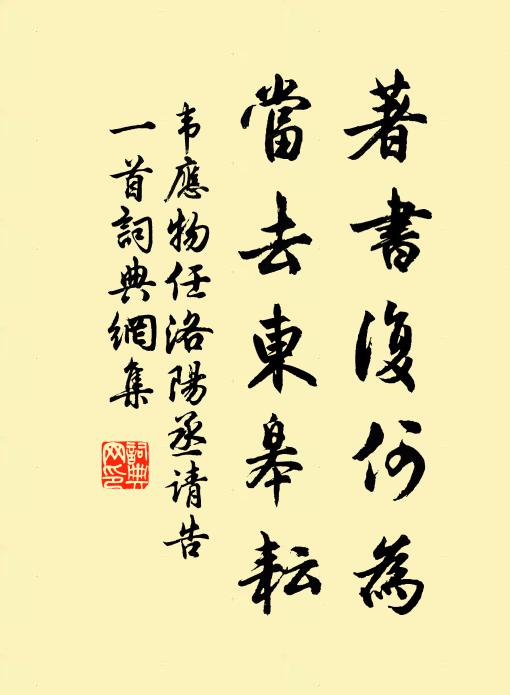 著書復何為
當去東皋耘
韦應物任洛陽丞請告
一首詞典網集
詞典网印